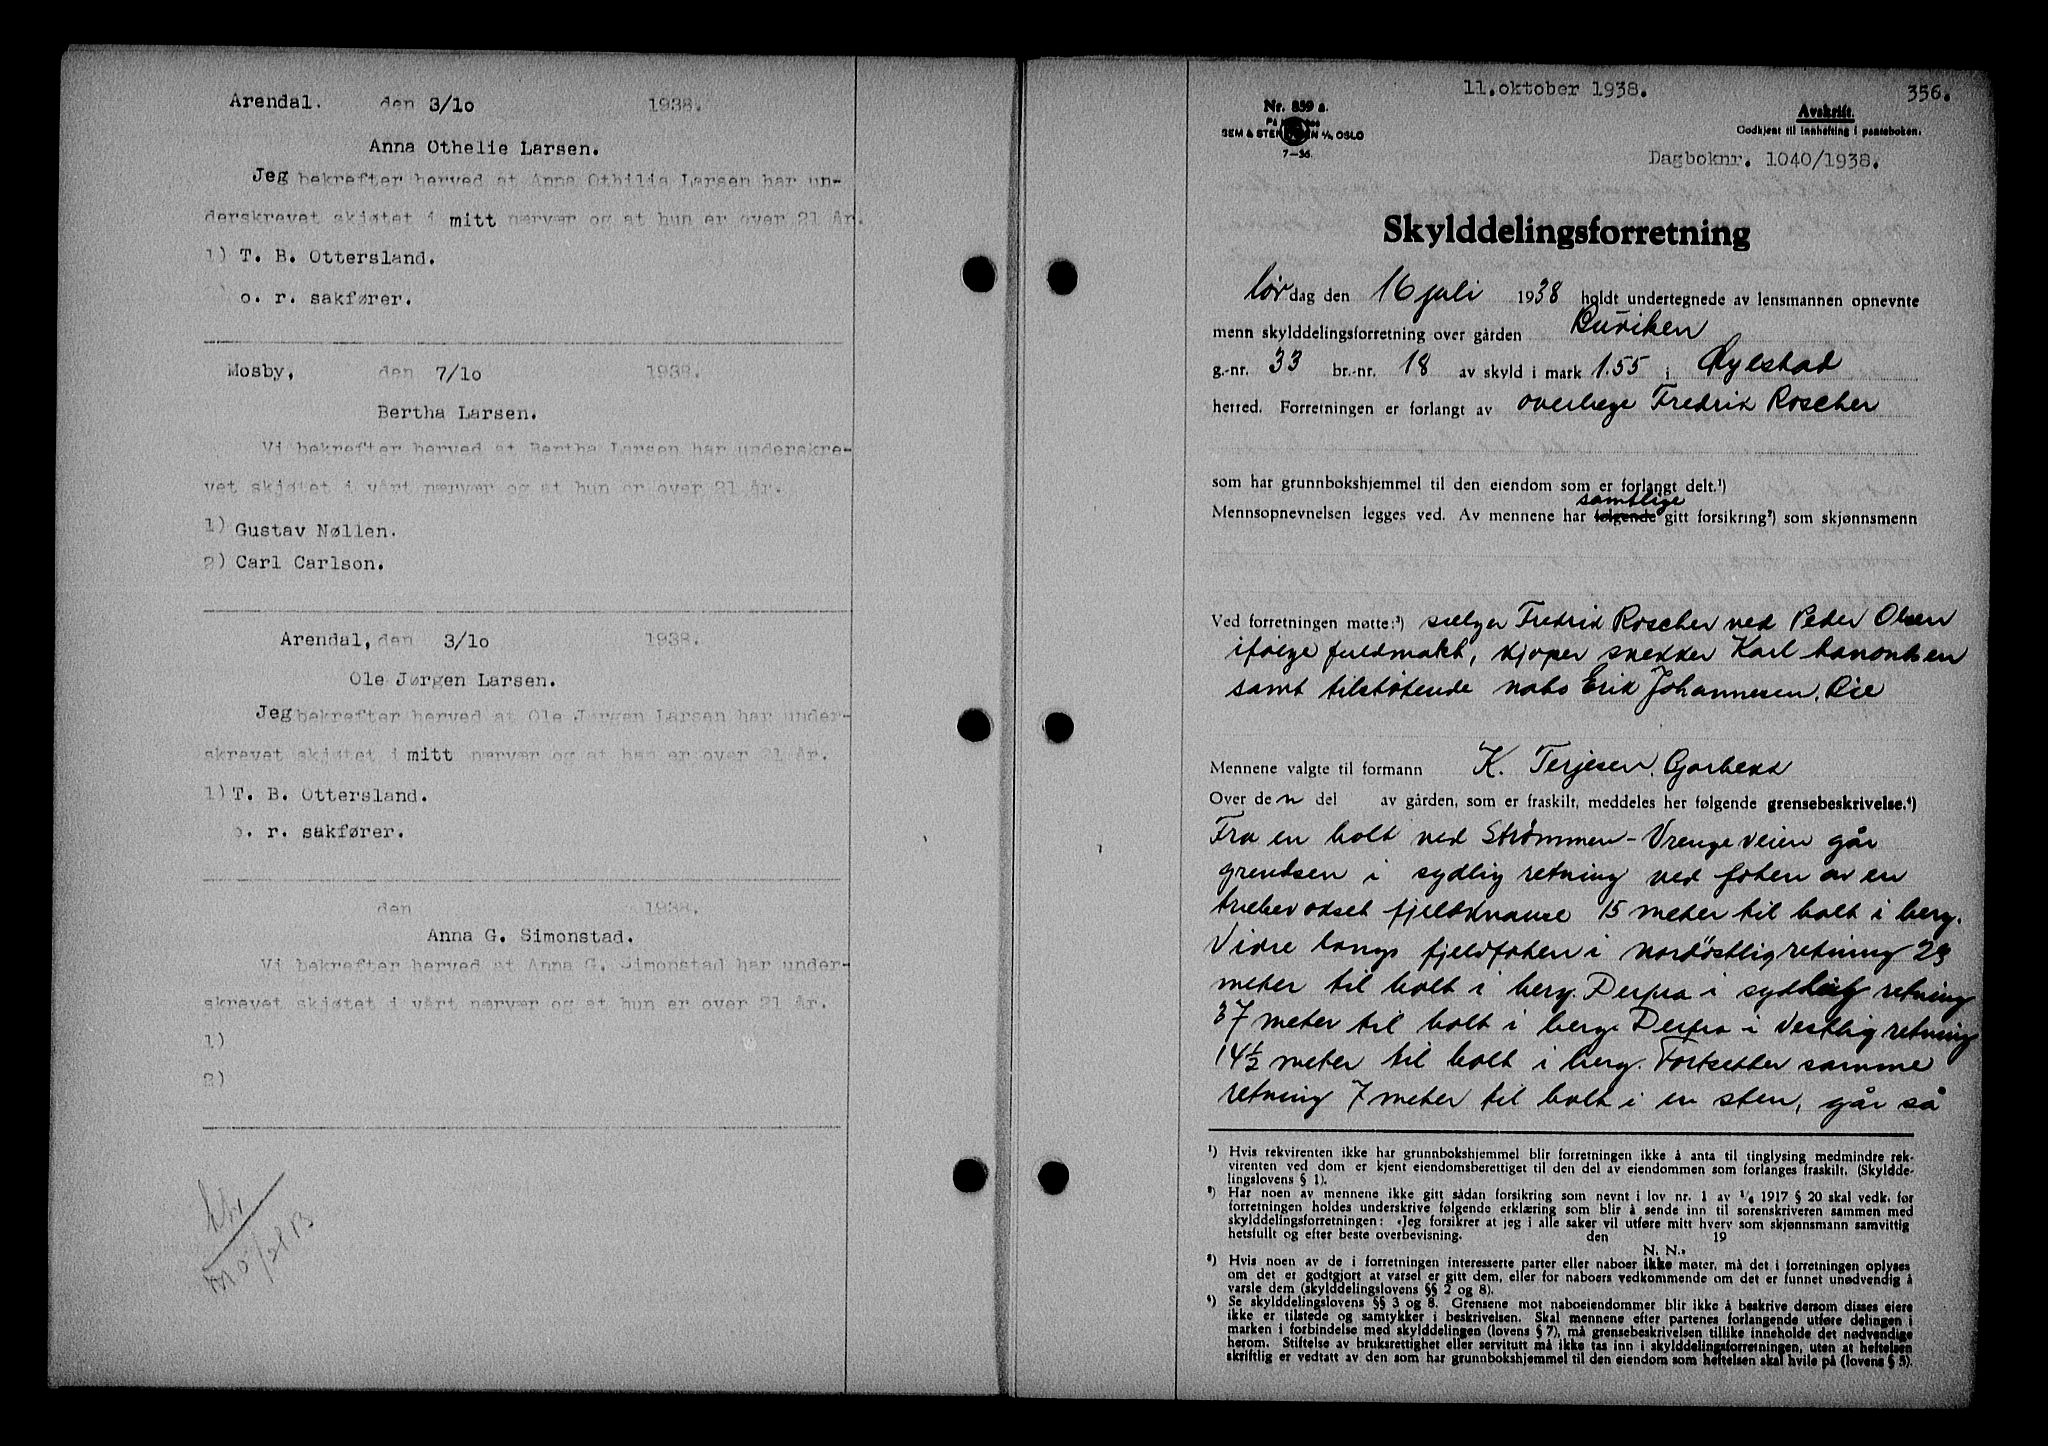 Arendal. den 3/10 1938.
Anna Othelie Larsen.
Jeg bekrefter herved at Anna Othilia Larsen har un-
derskrevet skjøtet i mitt nærvær og at hun er over 21 år.
1) T. B. Ottersland.
o. r. sakfører.
Mosby, den 7/10 1938.
Bertha Larsen.
Vi bekrefter herved at Bertha Larsen har underskre-
vet skjøtet i vårt nærvær og at hun er over 21 år.
1) Gustav Nøllen.
2) Carl Carlson.
Arendal, den 3/10 1938.
Ole Jørgen Larsen.
Jeg bekrefter herved at Ole Jørgen Larsen har under-
skrevet skjøtet i mitt nærvær og at han er over 21 år.
1) T. B. Ottersland.
o. r. sakfører.
den 1938.
Anna G. Simonstad.
Vi bekrefter herved at Anna G. Simonstad har under-
skrevet skjøtet i vårt nærvær og at hun er over 21 år.
1)
2)
11. oktober 1938.
356.
Nr. 859 a.
SEM & STENERSEN A/S OSLO
7-36
Avskrift.
Godkjent til innhefting i panteboken.
Dagboknr. 1040/1938.
Skylddelingsforretning
lørdag den 16 juli 1938 holdt undertegnede av lensmannen opnevnte
menn skylddelingsforretning over gården Buviken
g.-nr. 33 br.-nr. 18 av skyld i mark 1.55 i Øyestad
herred. Forretningen er forlangt av overlege Fredrik Roscher
som har grunnbokshjemmel til den eiendom som er forlangt delt.¹)
samtlige
Mennsopnevnelsen legges ved. Av mennene har følgende gitt forsikring²) som skjønnsmenn
Ved forretningen møtte:³) selger Fredrik Roscher ved Peder Olsen
ifølge fuldmakt, kjøper snekker Karl
samt tilstøtende nabo Erik Johannesen, Rie
Mennene valgte til formann K. Terjesen, Garbekk
Over den del av gården, som er fraskilt, meddeles her følgende grensebeskrivelse.⁴)
Fra en bolt ved Strømmen-Vrengeveien går
grendsen i sydlig retning ved foten av en
trebevokset fjeldknause 15 meter til bolt i berg.
Vidre langs fjeldfoten i nordøstlig retning 23
meter til bolt i berg. Derfra i sydlig retning
37 meter til bolt i berg. Derfra i vestlig retning
14½ meter til bolt i berg. Fortsetter samme
retning 7 meter til bolt i en sten, går så
¹) Hvis rekvirenten ikke har grunnbokshjemmel blir forretningen ikke å anta til tinglysing medmindre rek-
virenten ved dom er kjent eiendomsberettiget til den del av eiendommen som forlanges fraskilt. (Skyldde-
lingslovens § 1).
²) Har noen av mennene ikke gitt sådan forsikring som nevnt i lov nr. 1 av 1/6 1917 § 20 skal vedk. før
forretningen holdes underskrive følgende erklæring som blir å sende inn til sorenskriveren sammen med
skylddelingsforretningen: «Jeg forsikrer at jeg i alle saker vil utføre mitt hverv som skjønnsmann samvittig
hetsfullt og efter beste overbevisning. den 19
N. N.»
³) Hvis noen av de i forretningen interesserte parter eller naboer ikke møter, må det i forretningen oplyses
om det er godtgjort at varsel er gitt dem, eller for naboers vedkommende om det er funnet unødvendig å
varsle dem (skylddelingslovens §§ 2 og 8).
⁴) Se skylddelingslovens §§ 3 og 8. Grensene mot naboeiendommer blir ikke å beskrive dersom disses eiere
ikke er tilstede og samtykker i beskrivelsen. Skal mennene efter partenes forlangende utføre delingen i
marken i forbindelse med skylddelingen (lovens § 7), må grensebeskrivelsen tillike inneholde det nødvendige
herom. Stiftelse av bruksrettighet eller servitutt må ikke tas inn i skylddelingsforretningen, uten at heftelsen
skriftlig er vedtatt av den som har grunnbokshjemmel til den eiendom som heftelsen skal hvile på (lovens § 5).